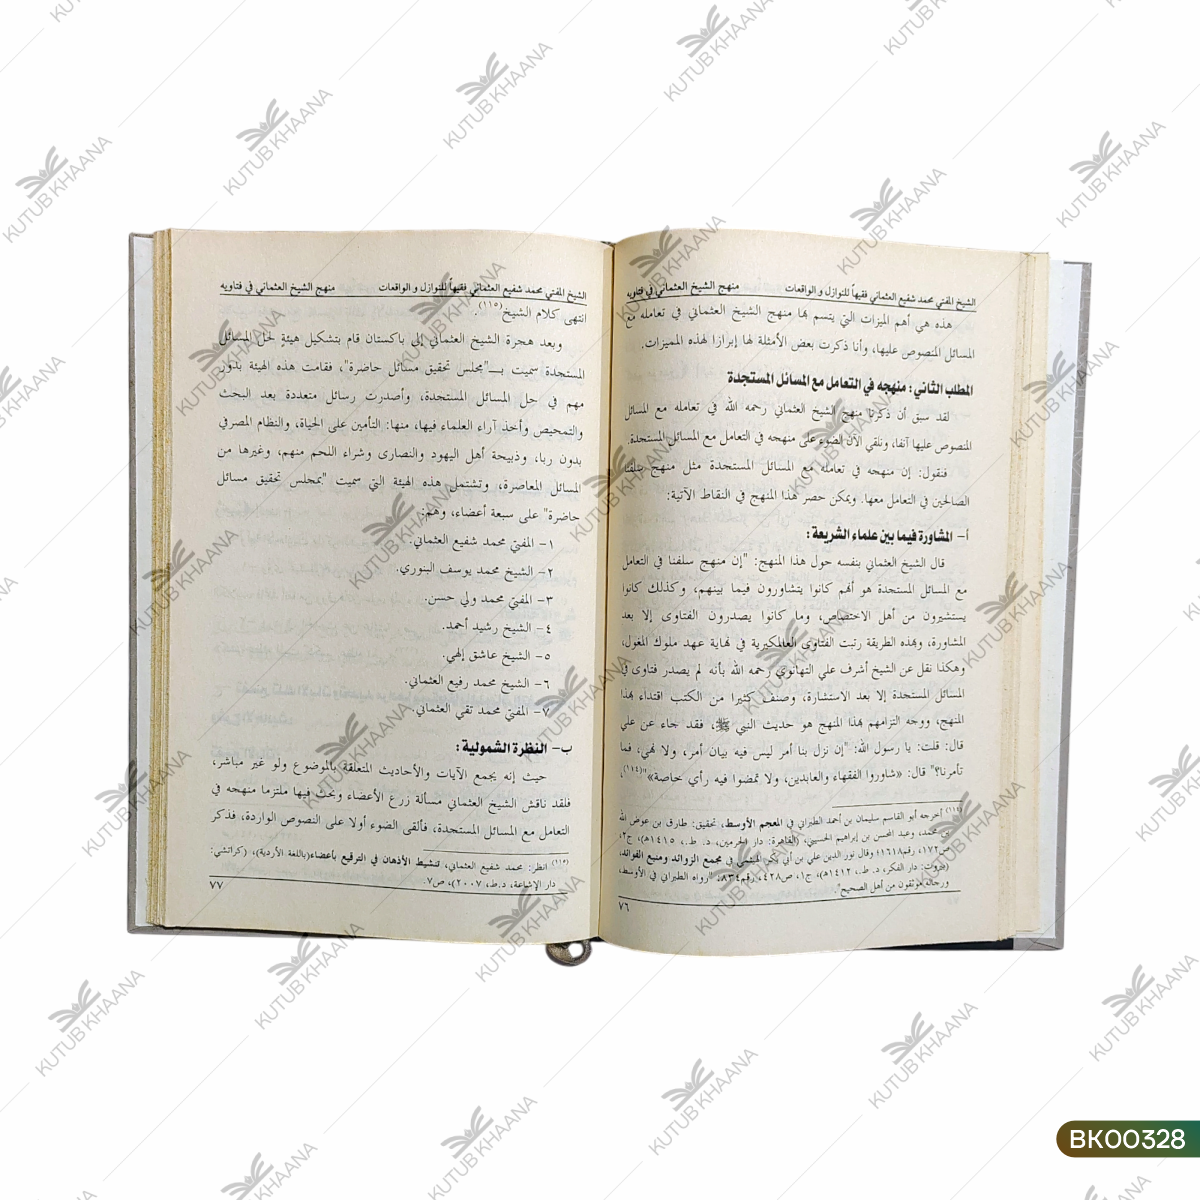 الشيخ المفتي محمد شفيع العثماني فقيهاً للنوازل والواقعات منهج الشيخ العثماني في فتاويه
هذه هي أهم الميزات التي يتسم بها منهج الشيخ العثماني في تعامله مع
المسائل المنصوص عليها، وأنا ذكرت بعض الأمثلة لها إبرازا لهذه المميزات.
المطلب الثاني: منهجه في التعامل مع المسائل المستجدة
لقد سبق أن ذكرنا منهج الشيخ العثماني رحمه الله في تعامله مع المسائل
المنصوص عليها آنفا، ونلقي الآن الضوء على منهجه في التعامل مع المسائل المستجدة.
فنقول: إن منهجه في تعامله مع المسائل المستجدة مثل منهج سلفنا
الصالحين في التعامل معها. ويمكن حصر هذا المنهج في النقاط الآتية:
أ- المشاورة فيما بين علماء الشريعة:
قال الشيخ العثماني بنفسه حول هذا المنهج: "إن منهج سلفنا في التعامل
مع المسائل المستجدة هو أنهم كانوا يتشاورون فيما بينهم، وكذلك كانوا
يستشيرون من أهل الاختصاص، وما كانوا يصدرون الفتاوى إلا بعد
المشاورة، وبهذه الطريقة رتبت الفتاوى العالمكيرية في نهاية عهد ملوك المغول،
وهكذا نقل عن الشيخ أشرف علي التهانوي رحمه الله بأنه لم يصدر فتاوى في
المسائل المستجدة إلا بعد الاستشارة، وصنف كثيرا من الكتب اقتداء بهذا
المنهج، ووجه التزامهم بهذا المنهج هو حديث النبي ﷺ، فقد جاء عن علي
قال: قلت: يا رسول الله: "إن نزل بنا أمر ليس فيه بيان أمر، ولا نهي، فما
تأمرنا؟" قال: «شاوروا الفقهاء والعابدين، ولا تمضوا فيه رأي خاصة»"(١١٤)،
(١١٤) أخرجه أبو القاسم سليمان بن أحمد الطبراني في المعجم الأوسط، تحقيق: طارق بن عوض الله
بن محمد، وعبد المحسن بن إبراهيم الحسيني، (القاهرة: دار الحرمين، د. ط.، ١٤١٥هـ)، ج٢،
ص١٧٢، رقم١٦١٨؛ وقال نور الدين علي بن أبي بكر الهيثمي في مجمع الزوائد ومنبع الفوائد،
(بيروت: دار الفكر، د. ط.، ١٤١٢هـ)، ج١، ص٤٢٨، رقم٨٣٤: "رواه الطبراني في الأوسط،
ورجاله موثقون من أهل الصحيح".
٧٦
الشيخ المفتي محمد شفيع العثماني فقيهاً للنوازل والواقعات منهج الشيخ العثماني في فتاويه
انتهى كلام الشيخ (١١٥).
وبعد هجرة الشيخ العثماني إلى باكستان قام بتشكيل هيئة لحل المسائل
المستجدة سميت بـــ"مجلس تحقيق مسائل حاضرة"، فقامت هذه الهيئة بدور
مهم في حل المسائل المستجدة، وأصدرت رسائل متعددة بعد البحث
والتمحيص وأخذ آراء العلماء فيها، منها: التأمين على الحياة، والنظام المصرفي
بدون ربا، وذبيحة أهل اليهود والنصارى وشراء اللحم منهم، وغيرها من
المسائل المعاصرة، وتشتمل هذه الهيئة التي سميت "بمجلس تحقيق مسائل
حاضرة" على سبعة أعضاء، وهم:
١- المفتي محمد شفيع العثماني.
٢- الشيخ محمد يوسف البنوري.
٣- المفتي محمد ولي حسن.
٤- الشيخ رشيد أحمد.
٥- الشيخ عاشق إلهي.
٦- الشيخ محمد رفيع العثماني.
٧- المفتي محمد تقي العثماني.
ب- النظرة الشمولية:
حيث إنه يجمع الآيات والأحاديث المتعلقة بالموضوع ولو غير مباشر،
فلقد ناقش الشيخ العثماني مسألة زرع الأعضاء وبحث فيها ملتزما منهجه في
التعامل مع المسائل المستجدة، فألقى الضوء أولا على النصوص الواردة، فذكر
(١١٥) انظر: محمد شفيع العثماني، تنشيط الأذهان في الترقيع بأعضاء(باللغة الأردية)، (كراتشي:
دار الإشاعة، د.ط، ٢٠٠٧)، ص٧.
٧٧
KUTUB KHAANA
BK00328